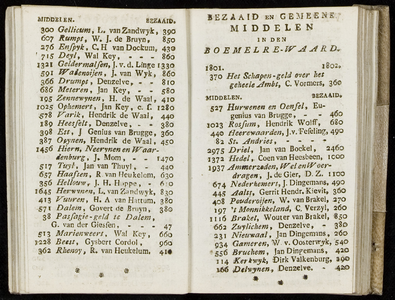 MIDDELEN. BEZAAID.
300 Gellicum, L. van Zandwyk, 390
607 Rumpt, W. J. de Bruyn, 850
276 Enspyk, C. H van Dockum, 430
715 Deyl, Wal Key, - - - 860
1321 Geldermalsen, J. v. d. Linge 1330
591 Wadenoijen, J. van Wyk, 860
366 Drumpt, Denzelve, - - - 580
686 Meteren, Jan Key, - - 580
195 Zennewynen, H. de Waal 410
1025 Ophemert, Jan Key, c. f. 1280
578 Varik, Hendrik de Waal, 440
189 Heesselt, Denzelve, - - 380
398 Est, J Genius van Brugge, 360
387 Opynen, Hendrik de Waal, 450
1456 Hiern, Neerynen en Waardenburg,
J. Mom, - - - 1470
517 Tuyl, Jan van Thuyl, - 440
657 Haaften, R van Heukelom, 630
356 Hellouw, J. H. Happe, - 610
1645 Herwynen, L. van Zandwyk, 830
413 Vuuren, H. A van Hattum, 380
571 Dalem, Govert de Bruyn, 380
38 Passagie-geld te Dalem,
G. van der Giessen, - - 47
513 Marienweert, Wal Key, 660
2228 Beest, Gysbert Cordol, 960
362 Rhenoy, R. van Heukelum. 410
BEZAAID EN GEMEENE
MIDDELEN
IN DEN
BOEMELRE-WAARD.
1801. 1802.
370 Het Schapen-geld over het
geheele Ambt, C. Vormers, 360
MIDDELEN. BEZAAID.
527 Hurwenen en Oensel, Eugenius
van Brugge, - - 460
1023 Rossum, Hendrik Wolff, 680
440 Heerewaarden, J.v. Feseling, 490
82 St. Andries, - - - -
2975 Driel, Jan van Bockel, 2460
1372 Hedel, Coen van Heesbeen, 1000
1937 Ammerzoden, Wel en Woerdragen,
J. de Gier, D. Z. 1100
674 Nederhemert, J. Dingemans, 490
445 Aalst, Gerrit Hendr. Kievit, 360
408 Pouderoijen, W. van Brakel, 270
197 's Monnikkeland, C. Verzyl, 260
1116 Brakel, Wouter van Brakel, 850
662 Zuylichem, Denzelve, - 380
231 Nieuwaal, Jan Dingemans, 260
934 Gameren, W v. Oosterwyk, 540
556 Bruchem, Jan Dingemans, 420
114 Kerkwyk, Dirk Valkenburg, 290
166 Delwynen, Denzelve, - 420